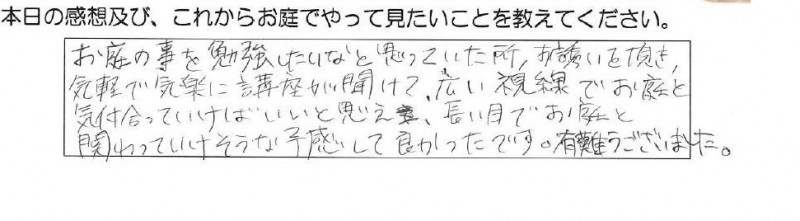 本日の感想及び、これからお庭でやって見たいことを教えてください。
お庭の事を勉強したいなと思っていた所、お誘いを頂き、
気軽で気楽に講座が聞けて、広い視線でお庭と
気付合っていけばいいと思え、長い目でお庭と
関わっていけそうな予感がして良かったです。有難うございました。